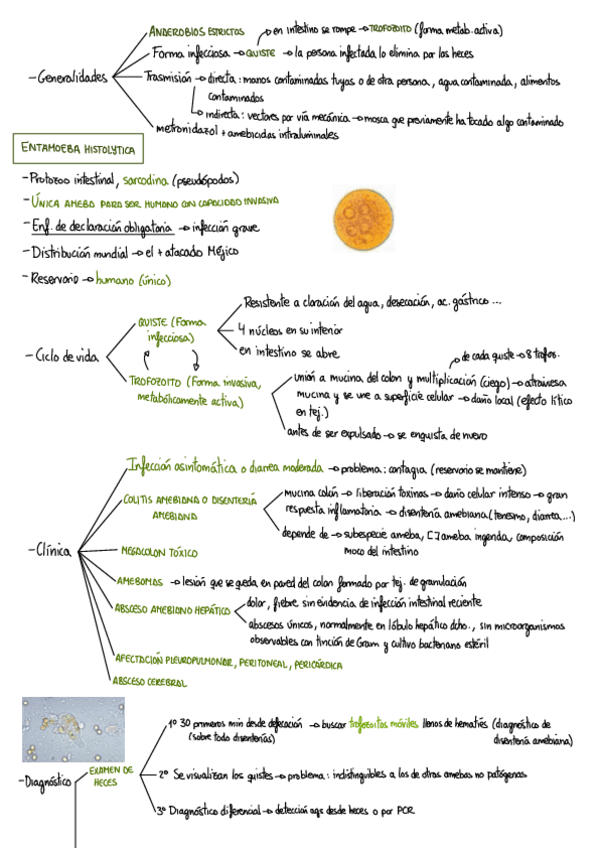 ANAEROBIOS ESTRICTOS
en intestino se rompe → TROFOZOITO (forma metab. activa)
Forma infecciosa → QUISTE → la persona infectada lo elimina por las heces
- Generalidades
Trasmisión → directa: manos contaminadas tuyas o de otra persona, agua contaminada, alimentos
contaminados
→ indirecta: vectores por vía mecánica → mosca que previamente ha tocado algo contaminado
metronidazol + amebicidas intraluminales
ENTAMOEBA HISTOLYTICA
- Protozoo intestinal, sarcodina (pseudópodos)
- ÚNICA AMEBA PARA SER HUMANO CON CAPACIDAD INVASIVA
- Enf. de declaración obligatoria → infección grave
- Distribución mundial → el + atacado Méjico
- Reservorio → humano (único)
- Ciclo de vida
QUISTE (Forma
infecciosa)
Resistente a cloración del agua, desecación, ac. gástrico ...
4 núcleos en su interior
en intestino se abre
de cada quiste → 8 trofos.
TROFOZOITO (Forma invasiva,
metabólicamente activa)
unión a mucina del colon y multiplicación (ciego) → atraviesa
mucina y se une a superficie celular → daño local (efecto lítico
en tej.)
antes de ser expulsado → se enquista de nuevo
- Clínica
Infección asintomática o diarrea moderada → problema: contagia (reservorio se mantiene)
COLITIS AMEBIANA O DISENTERÍA
AMEBIANA
mucina colon → liberación toxinas → daño celular intenso → gran
respuesta inflamatoria → disentería amebiana (tenesmo, diarrea...)
depende de → subespecie ameba, [ ] ameba ingerida, composición
moco del intestino
MEGACOLON TÓXICO
AMEBOMAS → lesión que se queda en pared del colon formado por tej. de granulación
ABSCESO AMEBIANO HEPÁTICO
dolor, fiebre, sin evidencia de infección intestinal reciente
abscesos únicos, normalmente en lóbulo hepático dcho., sin microorganismos
observables con tinción de Gram y cultivo bacteriano estéril
AFECTACIÓN PLEUROPULMONAR, PERITONEAL, PERICÁRDICA
ABSCESO CEREBRAL
- Diagnóstico
EXAMEN DE
HECES
1º 30 primeros min desde defecación → buscar trofozoitos móviles llenos de hematíes (diagnóstico de
(sobre todo disenterías) disentería amebiana)
2º Se visualizan los quistes → problema: indistinguibles a los de otras amebas no patógenas
3º Diagnóstico diferencial → detección ags desde heces o por PCR